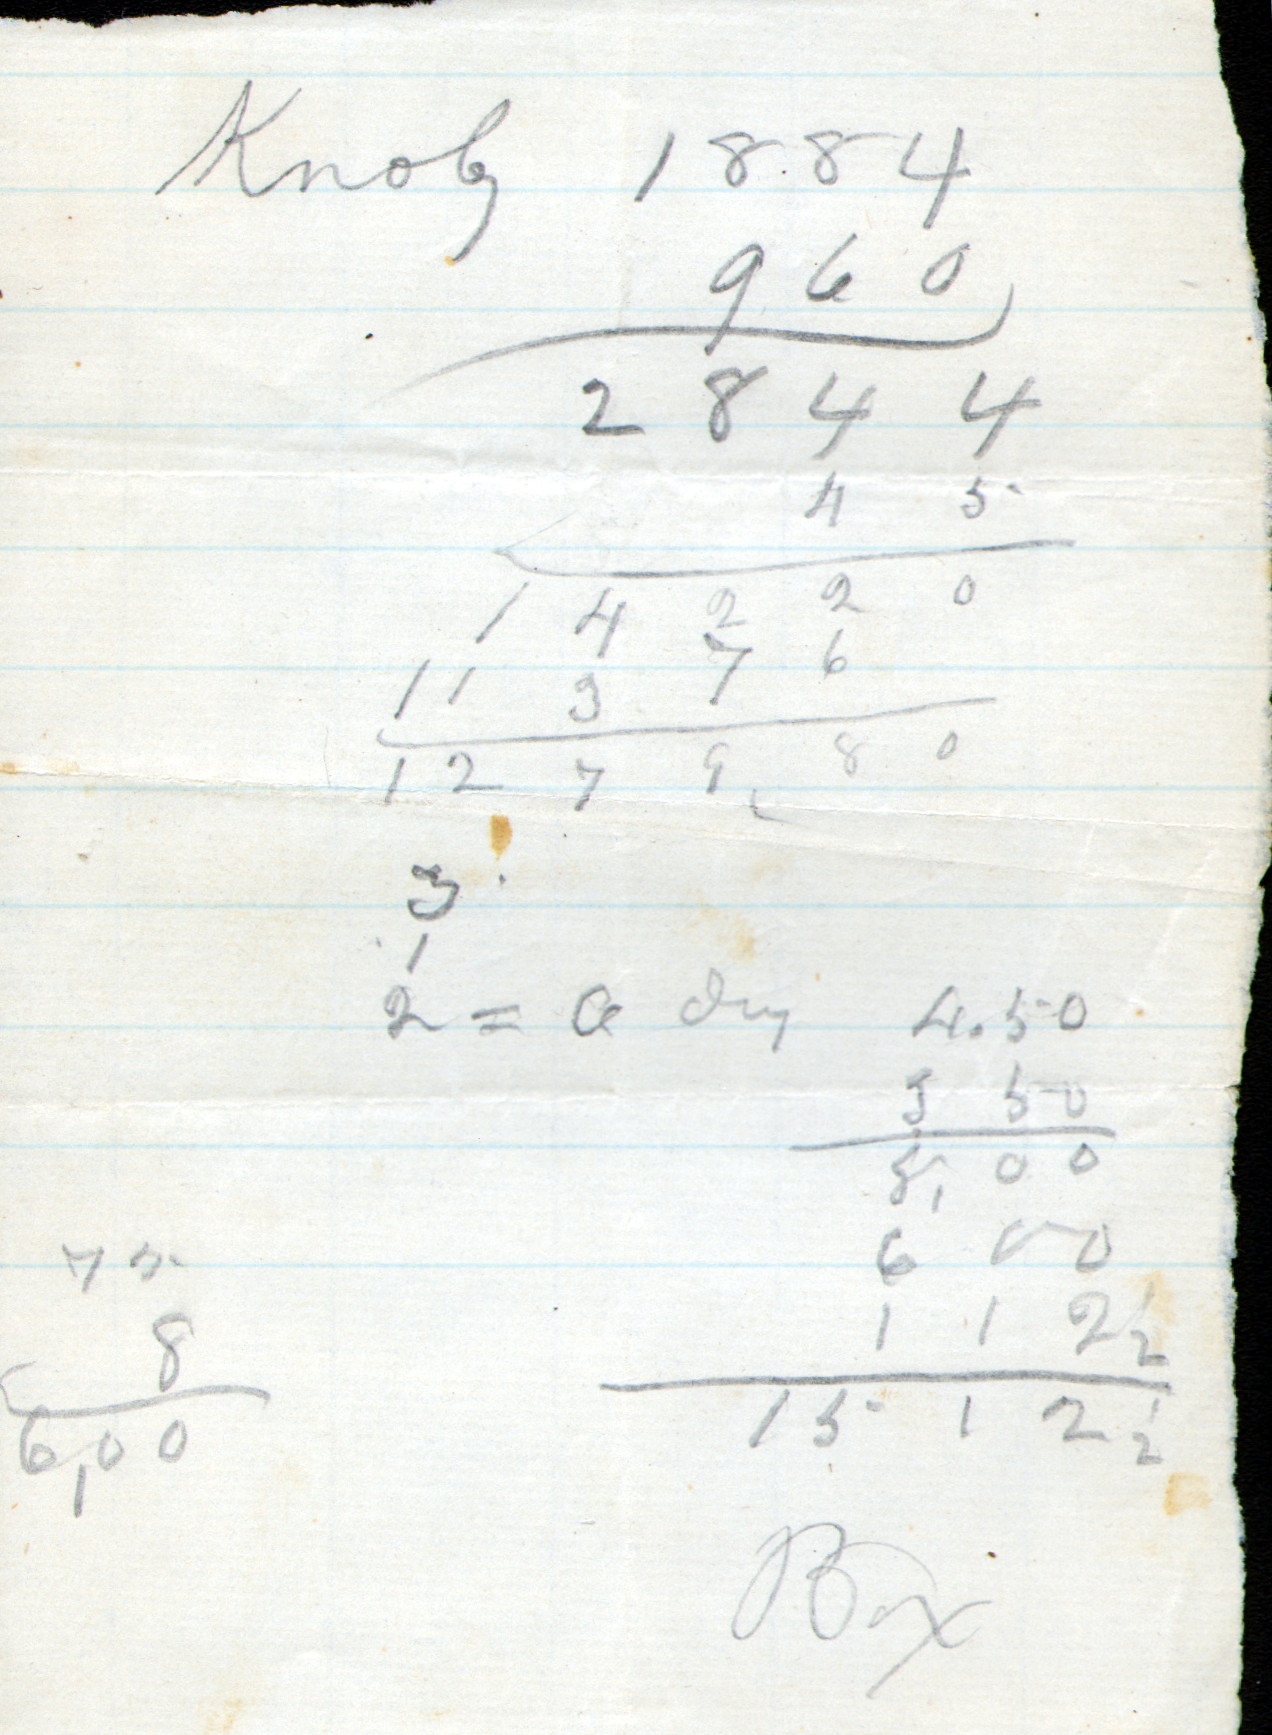 Knob 1884
960
2844
45
14220
11376
127980
3
1
2 = a day 4.50
3 50
8,00
75
6 00
8
1 12½
6,00
15 12½
Box